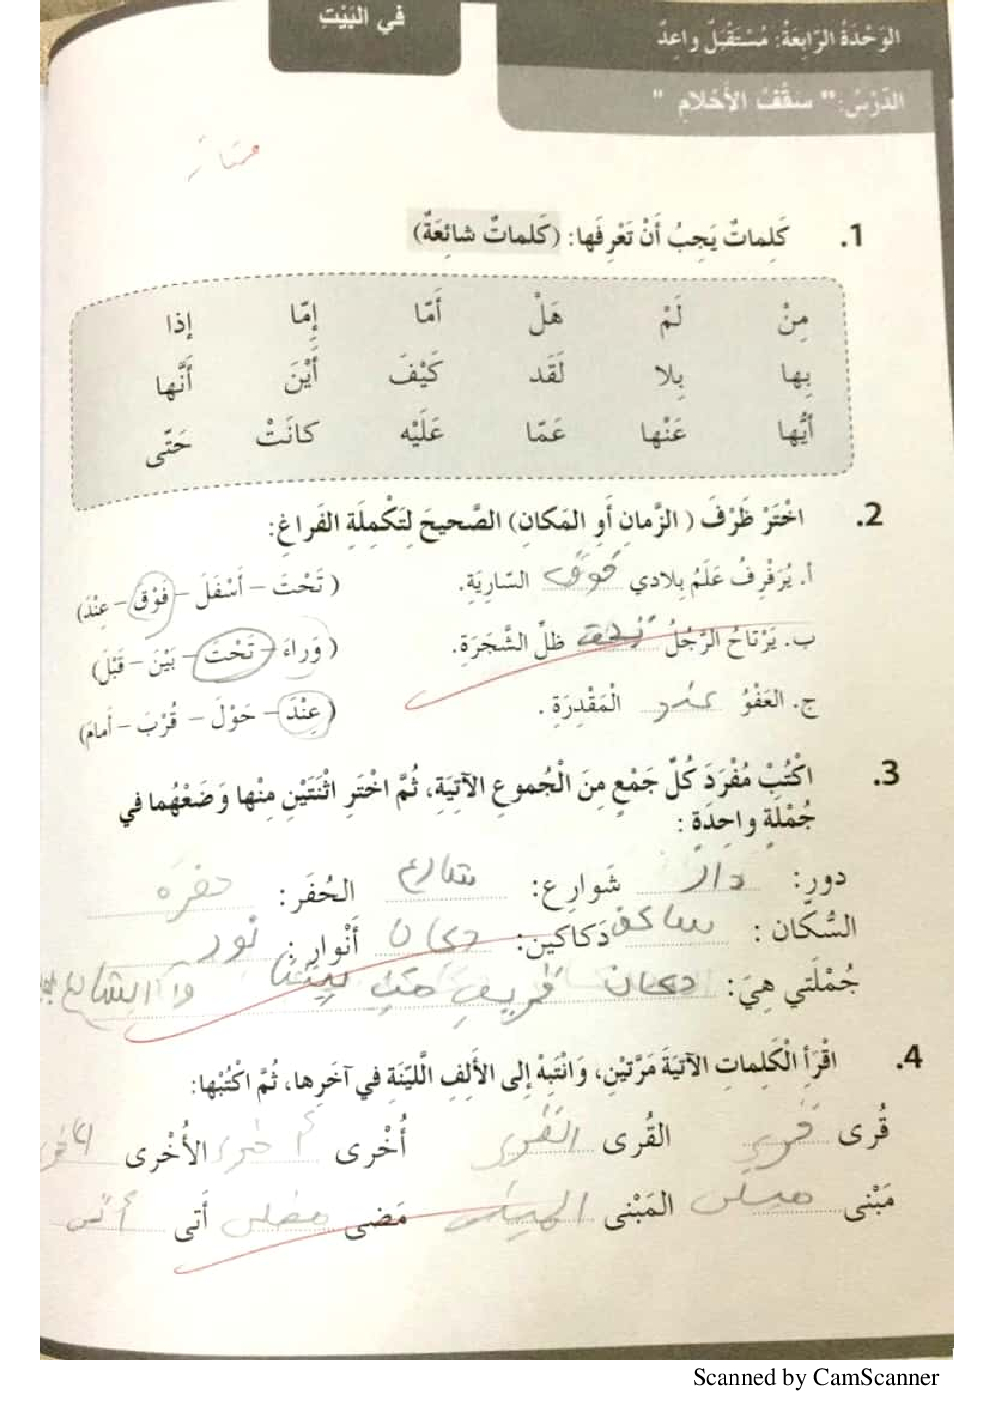 في البَيْتِ
الوَحْدَةُ الرّابِعَةُ: مُسْتَقْبَلٌ واعِدٌ
الدَّرْسُ: " سَقْفُ الأَحْلامِ "
ممتاز
1. كَلِماتٌ يَجِبُ أَنْ تَعْرِفَها: (كَلِماتٌ شائِعَةٌ)
مِنْ لَمْ هَلْ أَمّا إِمّا إذا
بِها بِلا لَقَد كَيْفَ أَيْنَ أَنَّها
أَيُّها عَنْها عَمّا عَلَيْه كانَتْ حَتّى
2. اخْتَرْ ظَرْفَ ( الزَّمانِ أَوِ المَكانِ) الصَّحيحَ لِتَكْمِلَةِ الفَراغِ:
أ. يُرَفْرِفُ عَلَمُ بِلادي فوق السّارِيَةِ. (تَحْتَ – أَسْفَلَ – فَوْقَ – عِنْدَ)
ب. يَرْتاحُ الرَّجُلُ تحت ظلِّ الشَّجَرَةِ. (وَراءَ – تَحْتَ – بَيْنَ – قَبْلَ)
ج. العَفْوُ عند الْمَقْدِرَةِ . (عِنْدَ – حَوْلَ – قُرْبَ – أَمامَ)
3. اكْتُبْ مُفْرَدَ كُلِّ جَمْعٍ مِنَ الْجُموعِ الآتِيَةِ، ثُمَّ اخْتَرِ اثْنَتَيْنِ مِنْها وَضَعْهُما في
جُمْلَةٍ واحِدَةٍ :
دور: دار شَوارِع: شارع الحُفَر: حفرة
السُّكّان : ساكن دَكاكين: دكان أَنْوار : نور
جُمْلَتي هِيَ: دكان قريب من بيتنا والشارع
4. اقْرَأِ الْكَلِماتِ الآتِيَةَ مَرَّتَيْنِ، وَانْتَبِهْ إِلى الأَلِفِ اللَّيِّنَةِ في آخَرِها، ثُمَّ اكْتُبْها:
قُرى قرى القُرى القرى أُخْرى أخرى الأُخْرى
مَبْنى مبنى المَبْنى المبنى مَضى مضى أَتى أتى
Scanned by CamScanner